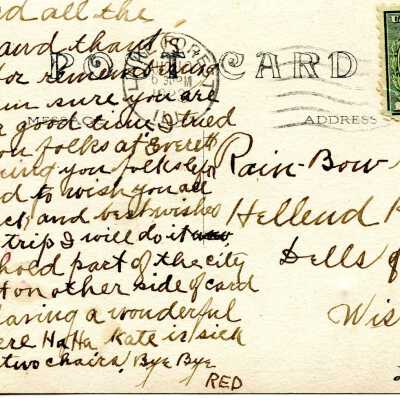 d all the
and thank
POST CARD
for remembering
am sure you are
MESSAGE
ADDRESS
a good time, tried
you folks at Everett
you folks
Rain-Bow
d to wish you all
ck and best wishes
Hellend
trip I will do it
hold part of the city
Dells
on other side of card
Having a wonderful
Wis
ere Ha Ha Kate is sick
two chairs, Bye Bye
RED